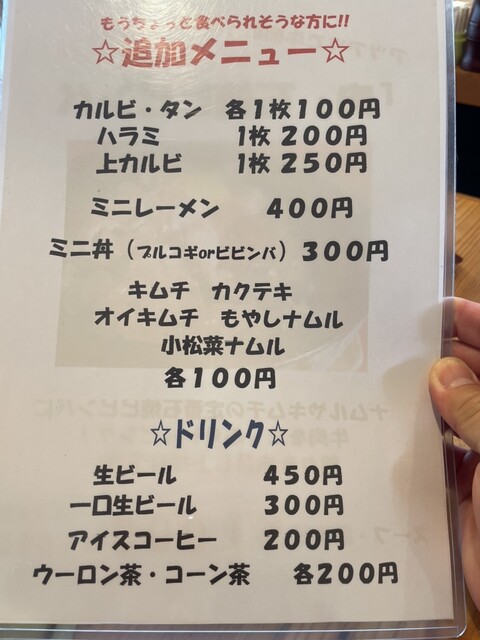 もうちょっと食べられそうな方に!!
☆追加メニュー☆
カルビ・タン 各1枚100円
ハラミ 1枚200円
上カルビ 1枚250円
ミニレーメン 400円
ミニ丼(プルコギorビビンバ)300円
キムチ カクテキ
オイキムチ もやしナムル
小松菜ナムル
各100円
☆ドリンク☆
生ビール 450円
一口生ビール 300円
アイスコーヒー 200円
ウーロン茶・コーン茶 各200円